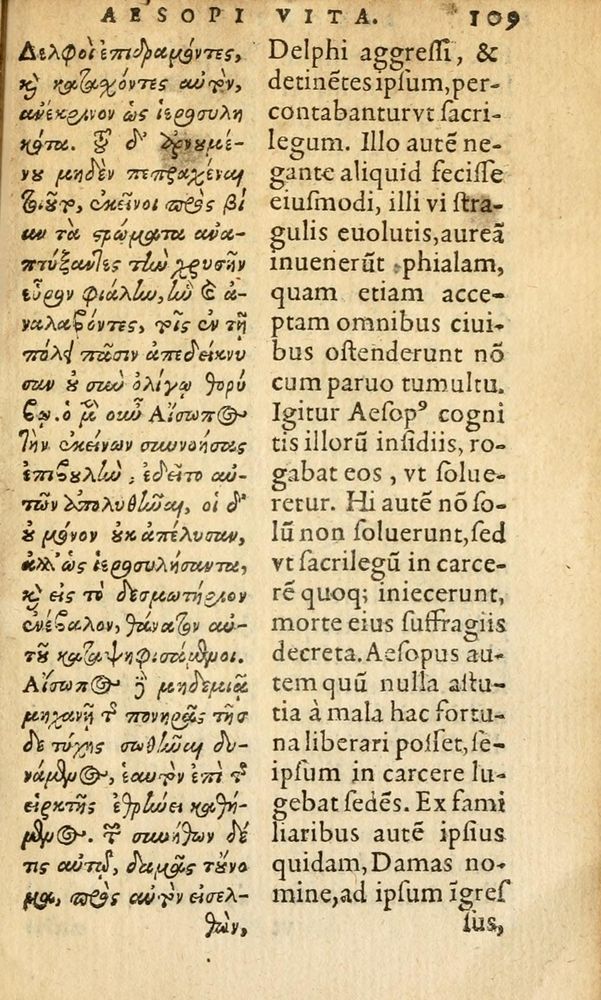 AESOPI VITA. 109
Δελφοὶ ἐπιδραμόντες,
καὶ κατασχόντες αὐτὸν,
ἀνέκρινον ὡς ἱεροσυλη
κότα. τοῦ δ' ἀρνουμέ-
νου μηδὲν πεπραχέναι
τοιοῦτον, ἐκεῖνοι πρὸς βί
αν τὰ στρώματα ἀνα-
πτύξαντες τὴν χρυσῆν
εὗρον φιάλην, ἣν καὶ ἀ-
ναλαβόντες, τοῖς ἐν τῇ
πόλει πᾶσιν ἀπεδείκνυ
σαν οὐ σὺν ὀλίγῳ θορύ
βῳ. ὁ μὲν οὖν Αἴσωπος
τὴν ἐκείνων συννοήσας
ἐπιβουλὴν, ἐδεῖτο αὐ-
τῶν ἀπολυθῆναι, οἱ δ'
οὐ μόνον οὐκ ἀπέλυσαν,
ἀλλ' ὡς ἱεροσυλήσαντα,
καὶ εἰς τὸ δεσμωτήριον
ἐνέβαλον, θάνατον αὐ-
τοῦ καταψηφισάμενοι.
Αἴσωπος δὲ μηδεμιᾷ
μηχανῇ τῆς πονηρᾶς τῆσ
δε τύχης σωθῆναι δυ-
νάμενος, ἑαυτὸν ἐπὶ τῆς
εἱρκτῆς ἐθρήνει καθή-
μενος. τῶν συνήθων δέ
τις αὐτῷ, δαμᾶς τοὔνο
μα, πρὸς αὐτὸν εἰσελ-
θὼν,
Delphi aggreſſi, &
detinẽtes ipſum,per-
contabantur vt ſacri-
legum. Illo autẽ ne-
gante aliquid feciſſe
eiuſmodi, illi vi ſtra-
gulis euolutis,aureã
inuenerũt phialam,
quam etiam acce-
ptam omnibus ciui-
bus oſtenderunt nõ
cum paruo tumultu.
Igitur Aeſopꝰ cogni
tis illorũ inſidiis, ro-
gabat eos , vt ſolue-
retur. Hi autẽ nõ ſo-
lũ non ſoluerunt,ſed
vt ſacrilegũ in carce-
rẽ quoq; iniecerunt,
morte eius ſuffragiis
decreta. Aeſopus au-
tem quũ nulla aſtu-
tia à mala hac fortu-
na liberari poſſet,ſe-
ipſum in carcere lu-
gebat ſedẽs. Ex fami
liaribus autẽ ipſius
quidam, Damas no-
mine,ad ipſum ĩgreſ
ſus,